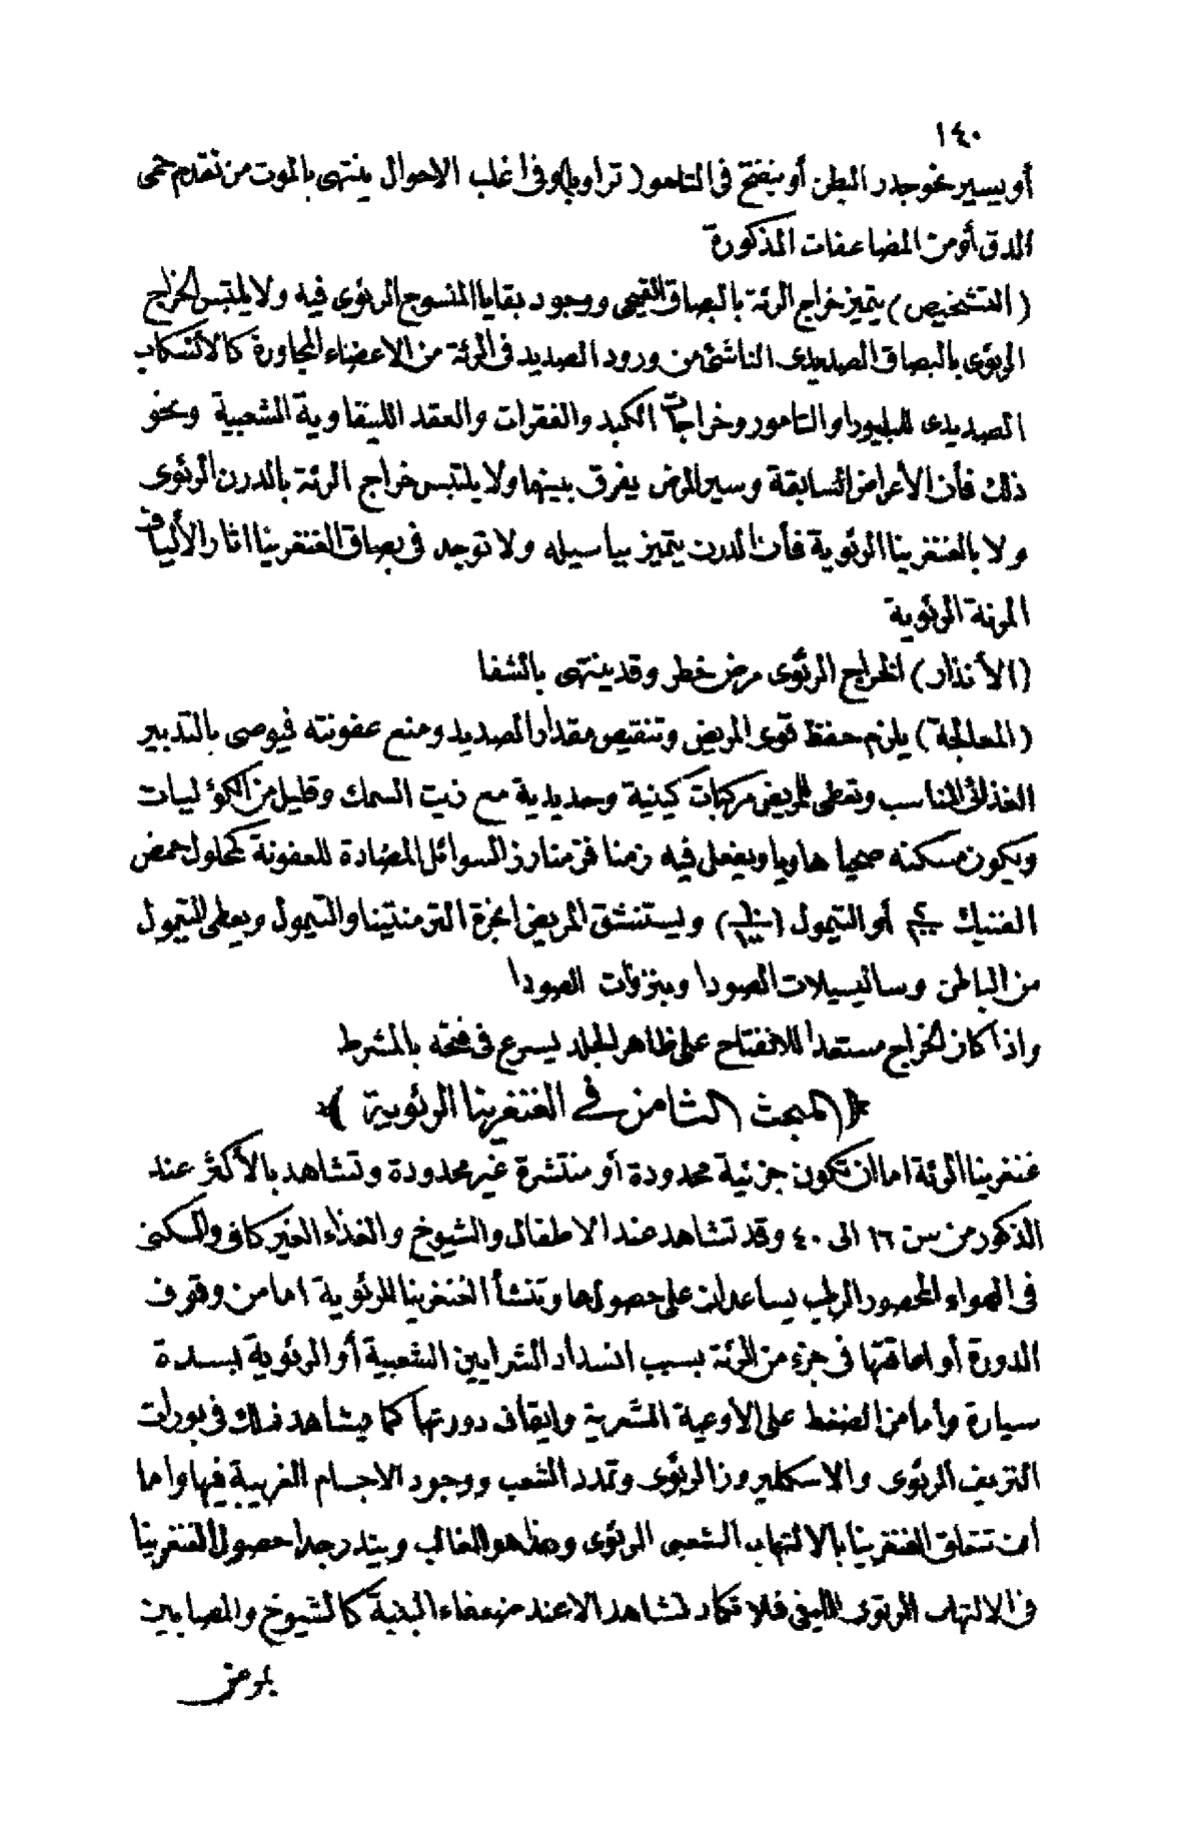 ١٤٠
أو يسير نحو جدر البطن أو ينفتح في التامور (تراوبا) وفي اغلب الاحوال ينتهى بالموت من تقدم حمى
الدق أو من المضاعفات المذكورة
(التشخيص) يتميز خراج الرئة بالبصاق القيحى ووجود بقايا المنسوج الرئوى فيه ولا يلتبس الخراج
الرئوى بالبصاق الصديدى الناشئ من ورود الصديد في الرئة من الاعضاء المجاورة كالانسكاب
الصديدى للبليورا والتامور وخراجات الكبد والفقرات والعقد اللينفاوية الشعبية ونحو
ذلك فأن الأعراض السابقة وسير المرض يفرق بينها ولا يلتبس خراج الرئة بالدرن الرئوى
ولا بالغنغرينا الرئوية فأن الدرن يتميز بباسيله ولا توجد في بصاق الغنغرينا اثار الألياف
المرنة الرئوية
(الأنذار) الخراج الرئوى مرض خطر وقد ينتهى بالشفا
(المعالجة) يلزم حفظ قوى المريض وتنقيص مقدار الصديد ومنع عفونته فيوصى بالتدبير
الغذائى المناسب وتعطى للمريض مركبات كينية وحديدية مع زيت السمك وقليل من الكؤليات
ويكون مسكنه صحيا هاويا ويفعل فيه زمنا فزمنا رز السوائل المضادة للعفونة كمحلول حمض
الفنيك أو التيمول وليستنشق المريض ابخرة الترمنتينا والتيمول ويعطى التيمول
من الباطن وساليسيلات الصودا وبنزوات الصودا
واذا كان الخراج مستعدا للانفتاح على ظاهر الجلد يسرع في فتحه بالمشرط
﴿المبحث الثامن في الغنغرينا الرئوية﴾
غنغرينا الرئة اما ان تكون جزئية محدودة أو منتشرة غير محدودة وتشاهد بالأكثر عند
الذكور من سن ١٦ الى ٤٠ وقد تشاهد عند الاطفال والشيوخ والغذاء الغير كافى والسكنى
في الهواء المحصور الرطب يساعدان على حصولها وتنشأ الغنغرينا الرئوية اما من وقوف
الدورة أو اعاقتها في جزء من الرئة بسبب انسداد الشرايين الشعبية أو الرئوية بسدة
سيارة وأما من الضغط على الأوعية الشعرية وايقاف دورتها كما يشاهد ذلك في بورات
النزيف الرئوى والاسكليروز الرئوى وتمدد الشعب ووجود الاجسام الغريبة فيها واما
ان تتعلق الغنغرينا بالالتهاب الشعبى الرئوى وهذا هو الغالب ويندر جدا حصول الغنغرينا
في الالتهاب الرئوى الليفى فلا تكاد تشاهد الا عند ضعفاء البنية كالشيوخ والمصابين
بمرض